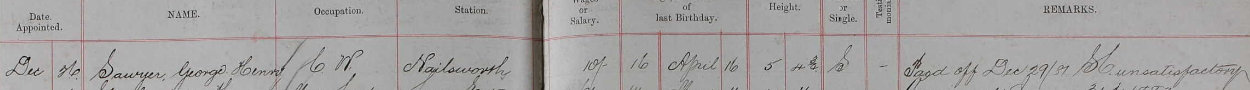 Date. Appointed. NAME. Occupation. Station. Wages or Salary. of last Birthday. Height. or Single. Testimonia. REMARKS.
Dec Sawyer, George Henry C W. Nailsworth 10/- 16 April 16 5 4¾ S - Payd off Dec 29/ unsatisfactory